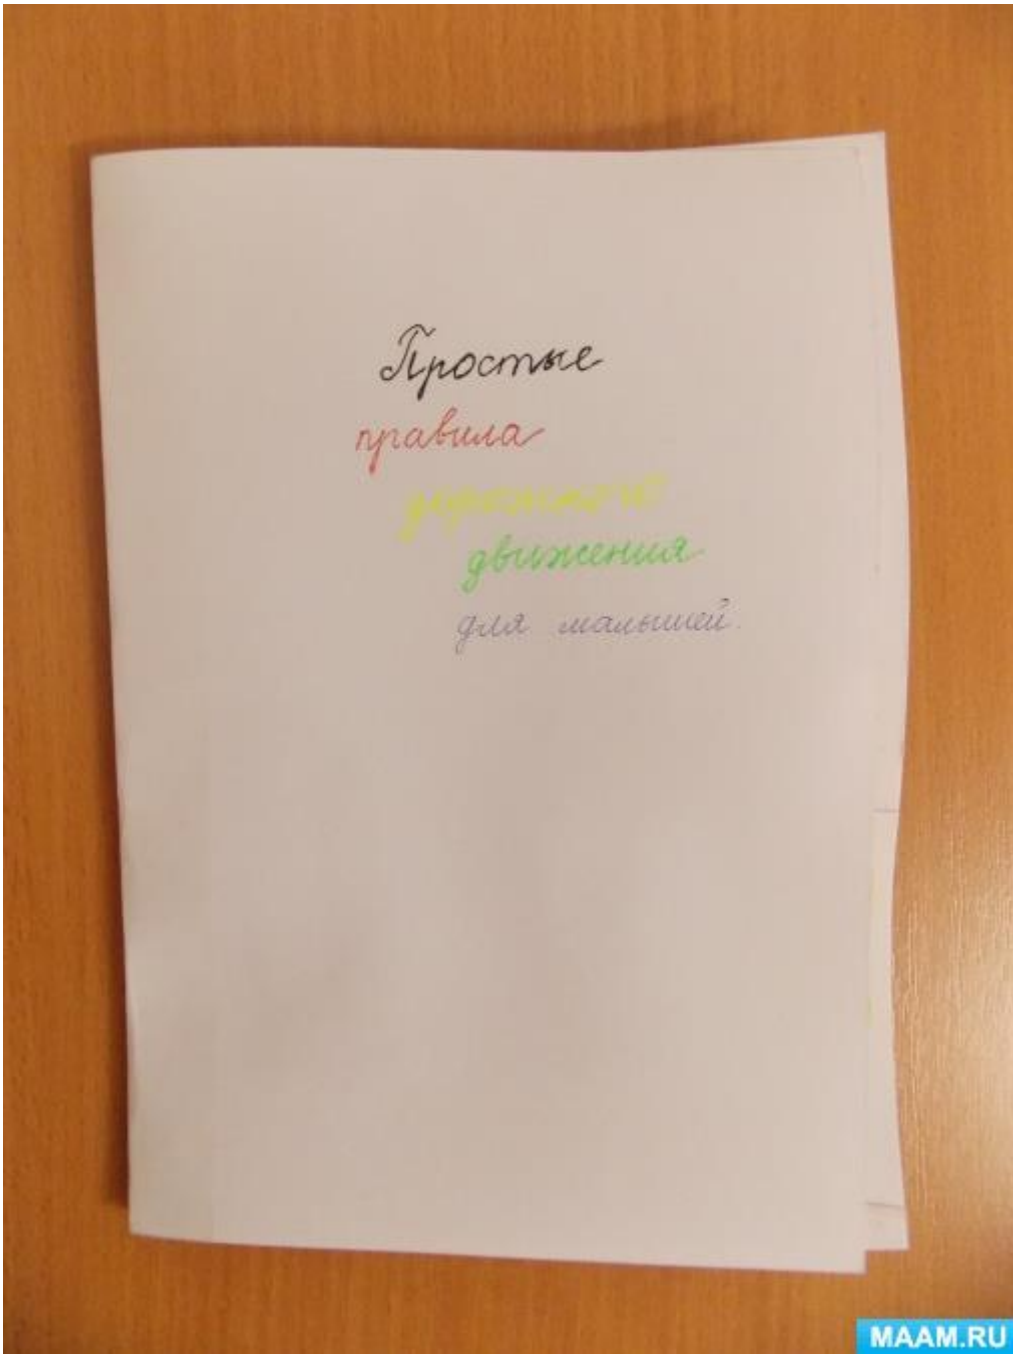 Простые
правила
дорожного
движения
для малышей.
MAAM.RU